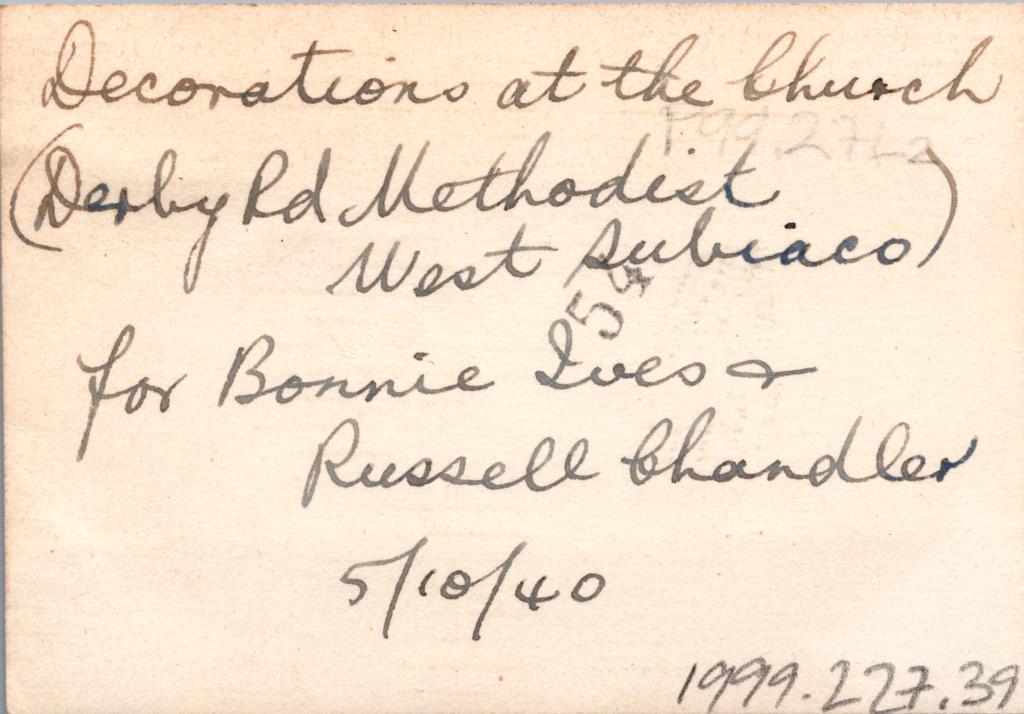 Decorations at the Church
(Derby Rd Methodist
West Subiaco)
54
for Bonnie Ives &
Russell Chandler
5/10/40
1999.227.39